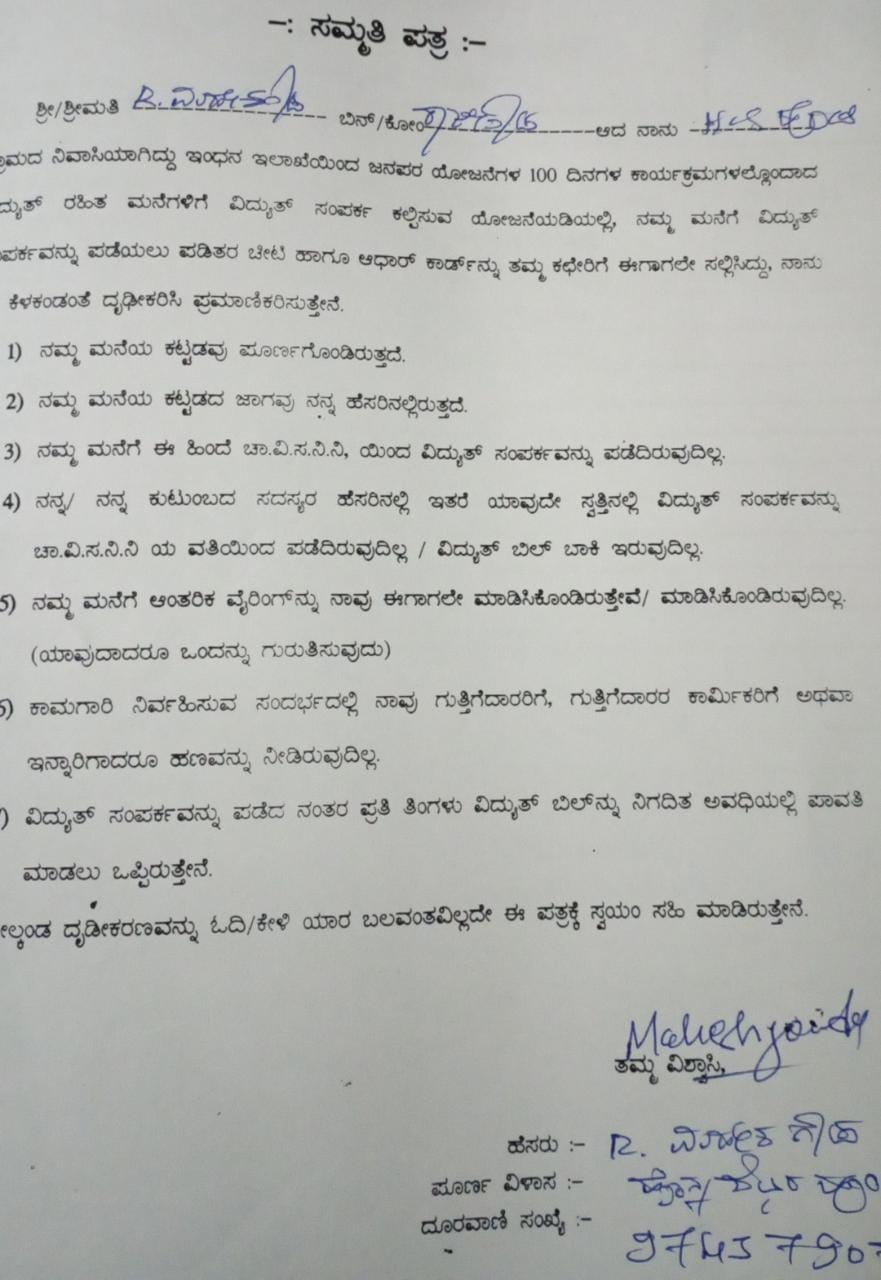 –: ಸಮ್ಮತಿ ಪತ್ರ :–
ಶ್ರೀ/ಶ್ರೀಮತಿ R. ಮಹೇಶಗೌಡ ಬಿನ್/ಕೋಂ ಆದ ನಾನು
ನಿವಾಸಿಯಾಗಿದ್ದು ಇಂಧನ ಇಲಾಖೆಯಿಂದ ಜನಪರ ಯೋಜನೆಗಳ 100 ದಿನಗಳ ಕಾರ್ಯಕ್ರಮಗಳಲ್ಲೊಂದಾದ
ದ್ಯುತ್ ರಹಿತ ಮನೆಗಳಿಗೆ ವಿದ್ಯುತ್ ಸಂಪರ್ಕ ಕಲ್ಪಿಸುವ ಯೋಜನೆಯಡಿಯಲ್ಲಿ, ನಮ್ಮ ಮನೆಗೆ ವಿದ್ಯುತ್
ಪರ್ಕವನ್ನು ಪಡೆಯಲು ಪಡಿತರ ಚೀಟಿ ಹಾಗೂ ಆಧಾರ್ ಕಾರ್ಡ್‌ನ್ನು ತಮ್ಮ ಕಛೇರಿಗೆ ಈಗಾಗಲೇ ಸಲ್ಲಿಸಿದ್ದು, ನಾನು
ಕೆಳಕಂಡಂತೆ ದೃಢೀಕರಿಸಿ ಪ್ರಮಾಣಿಕರಿಸುತ್ತೇನೆ.
1) ನಮ್ಮ ಮನೆಯ ಕಟ್ಟಡವು ಪೂರ್ಣಗೊಂಡಿರುತ್ತದೆ.
2) ನಮ್ಮ ಮನೆಯ ಕಟ್ಟಡದ ಜಾಗವು ನನ್ನ ಹೆಸರಿನಲ್ಲಿರುತ್ತದೆ.
3) ನಮ್ಮ ಮನೆಗೆ ಈ ಹಿಂದೆ ಚಾ.ವಿ.ಸ.ನಿ.ನಿ, ಯಿಂದ ವಿದ್ಯುತ್ ಸಂಪರ್ಕವನ್ನು ಪಡೆದಿರುವುದಿಲ್ಲ.
4) ನನ್ನ/ ನನ್ನ ಕುಟುಂಬದ ಸದಸ್ಯರ ಹೆಸರಿನಲ್ಲಿ ಇತರೆ ಯಾವುದೇ ಸ್ವತ್ತಿನಲ್ಲಿ ವಿದ್ಯುತ್ ಸಂಪರ್ಕವನ್ನು
ಚಾ.ವಿ.ಸ.ನಿ.ನಿ ಯ ವತಿಯಿಂದ ಪಡೆದಿರುವುದಿಲ್ಲ / ವಿದ್ಯುತ್ ಬಿಲ್ ಬಾಕಿ ಇರುವುದಿಲ್ಲ.
5) ನಮ್ಮ ಮನೆಗೆ ಆಂತರಿಕ ವೈರಿಂಗ್‌ನ್ನು ನಾವು ಈಗಾಗಲೇ ಮಾಡಿಸಿಕೊಂಡಿರುತ್ತೇವೆ/ ಮಾಡಿಸಿಕೊಂಡಿರುವುದಿಲ್ಲ.
(ಯಾವುದಾದರೂ ಒಂದನ್ನು ಗುರುತಿಸುವುದು)
6) ಕಾಮಗಾರಿ ನಿರ್ವಹಿಸುವ ಸಂದರ್ಭದಲ್ಲಿ ನಾವು ಗುತ್ತಿಗೆದಾರರಿಗೆ, ಗುತ್ತಿಗೆದಾರರ ಕಾರ್ಮಿಕರಿಗೆ ಅಥವಾ
ಇನ್ನಾರಿಗಾದರೂ ಹಣವನ್ನು ನೀಡಿರುವುದಿಲ್ಲ.
) ವಿದ್ಯುತ್ ಸಂಪರ್ಕವನ್ನು ಪಡೆದ ನಂತರ ಪ್ರತಿ ತಿಂಗಳು ವಿದ್ಯುತ್ ಬಿಲ್‌ನ್ನು ನಿಗದಿತ ಅವಧಿಯಲ್ಲಿ ಪಾವತಿ
ಮಾಡಲು ಒಪ್ಪಿರುತ್ತೇನೆ.
ೇಲ್ಕಂಡ ದೃಡೀಕರಣವನ್ನು ಓದಿ/ಕೇಳಿ ಯಾರ ಬಲವಂತವಿಲ್ಲದೇ ಈ ಪತ್ರಕ್ಕೆ ಸ್ವಯಂ ಸಹಿ ಮಾಡಿರುತ್ತೇನೆ.
Maheshgowda
ತಮ್ಮ ವಿಶ್ವಾಸಿ,
ಹೆಸರು :– R. ಮಹೇಶ ಗೌಡ
ಪೂರ್ಣ ವಿಳಾಸ :–
ದೂರವಾಣಿ ಸಂಖ್ಯೆ :– 9743 790